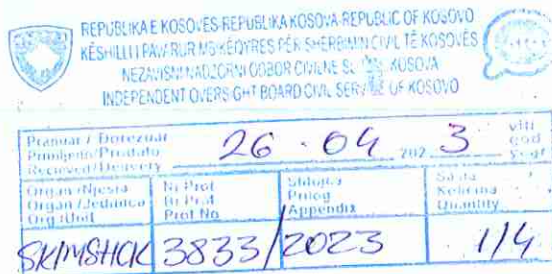 REPUBLIKA E KOSOVËS-REPUBLIKA KOSOVA-REPUBLIC OF KOSOVO
KËSHILLI I PAVARUR MBIKËQYRËS PËR SHËRBIMIN CIVIL TË KOSOVËS
NEZAVISNI NADZORNI ODBOR CIVILNE KOSOVA
INDEPENDENT OVERSIGHT BOARD CIVIL SERVICE OF KOSOVO
Pranuar / Dorëzuar
Primljeno/Predato
Recieved/Delivery
26 . 04 . 202 3
viti
god
Year
Organ /Njësia
Organ /Jedinica
Org /Unit
Nr Prot
Br Prot
Prot No
Shtojca
Prilog
Appendix
Sasia
Količina
Quantity
SKIMSHCK 3833/2023 1/4